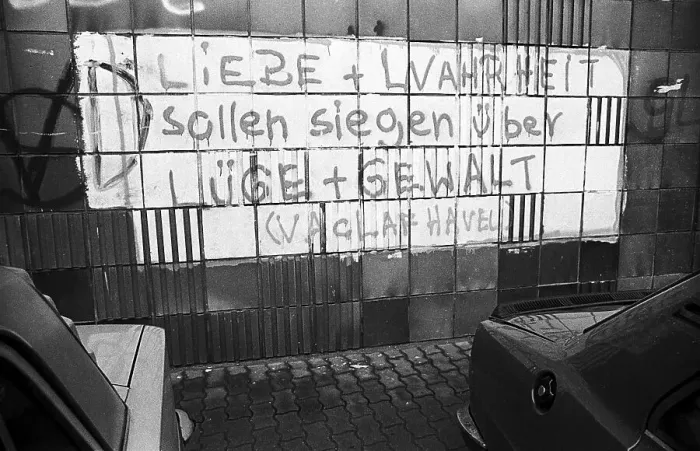 LiEBE + WAHRHEIT
sollen siegen über
LÜGE + GEWALT
(VACLAF HAVEL